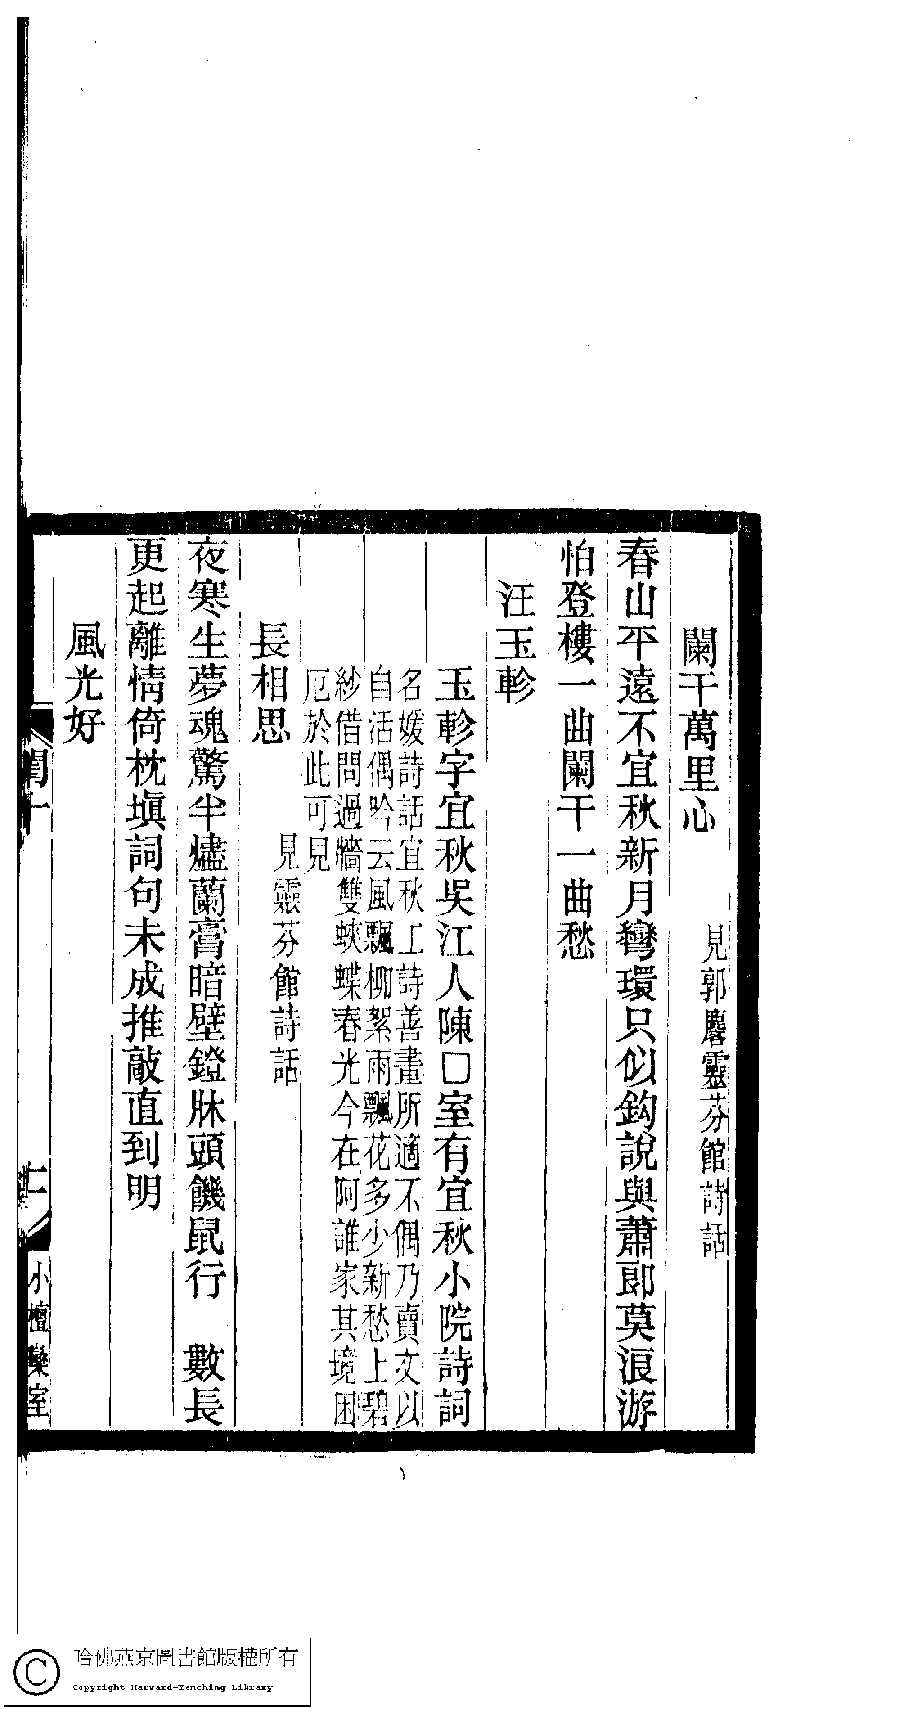 闌干萬里心
見郭麐靈芬館詩話
春山平遠不宜秋新月彎環只似鈎說與蕭郎莫浪游
怕登樓一曲闌干一曲愁
汪玉軫
玉軫字宜秋吳江人陳□室有宜秋小院詩詞
名媛詩話宜秋工詩善畫所適不偶乃賣文以
自活偶吟云風飄柳絮雨飄花多少新愁上碧
紗借問過牆雙蛺蝶春光今在阿誰家其境困
厄於此可見
長相思
見靈芬館詩話
夜寒生夢魂驚半燼蘭膏暗壁鐙牀頭饑鼠行　數長
更起離情倚枕塡詞句未成推敲直到明
風光好
閏十
小檀欒室
哈佛燕京圖書館版權所有
Copyright Harvard-Yenching Library